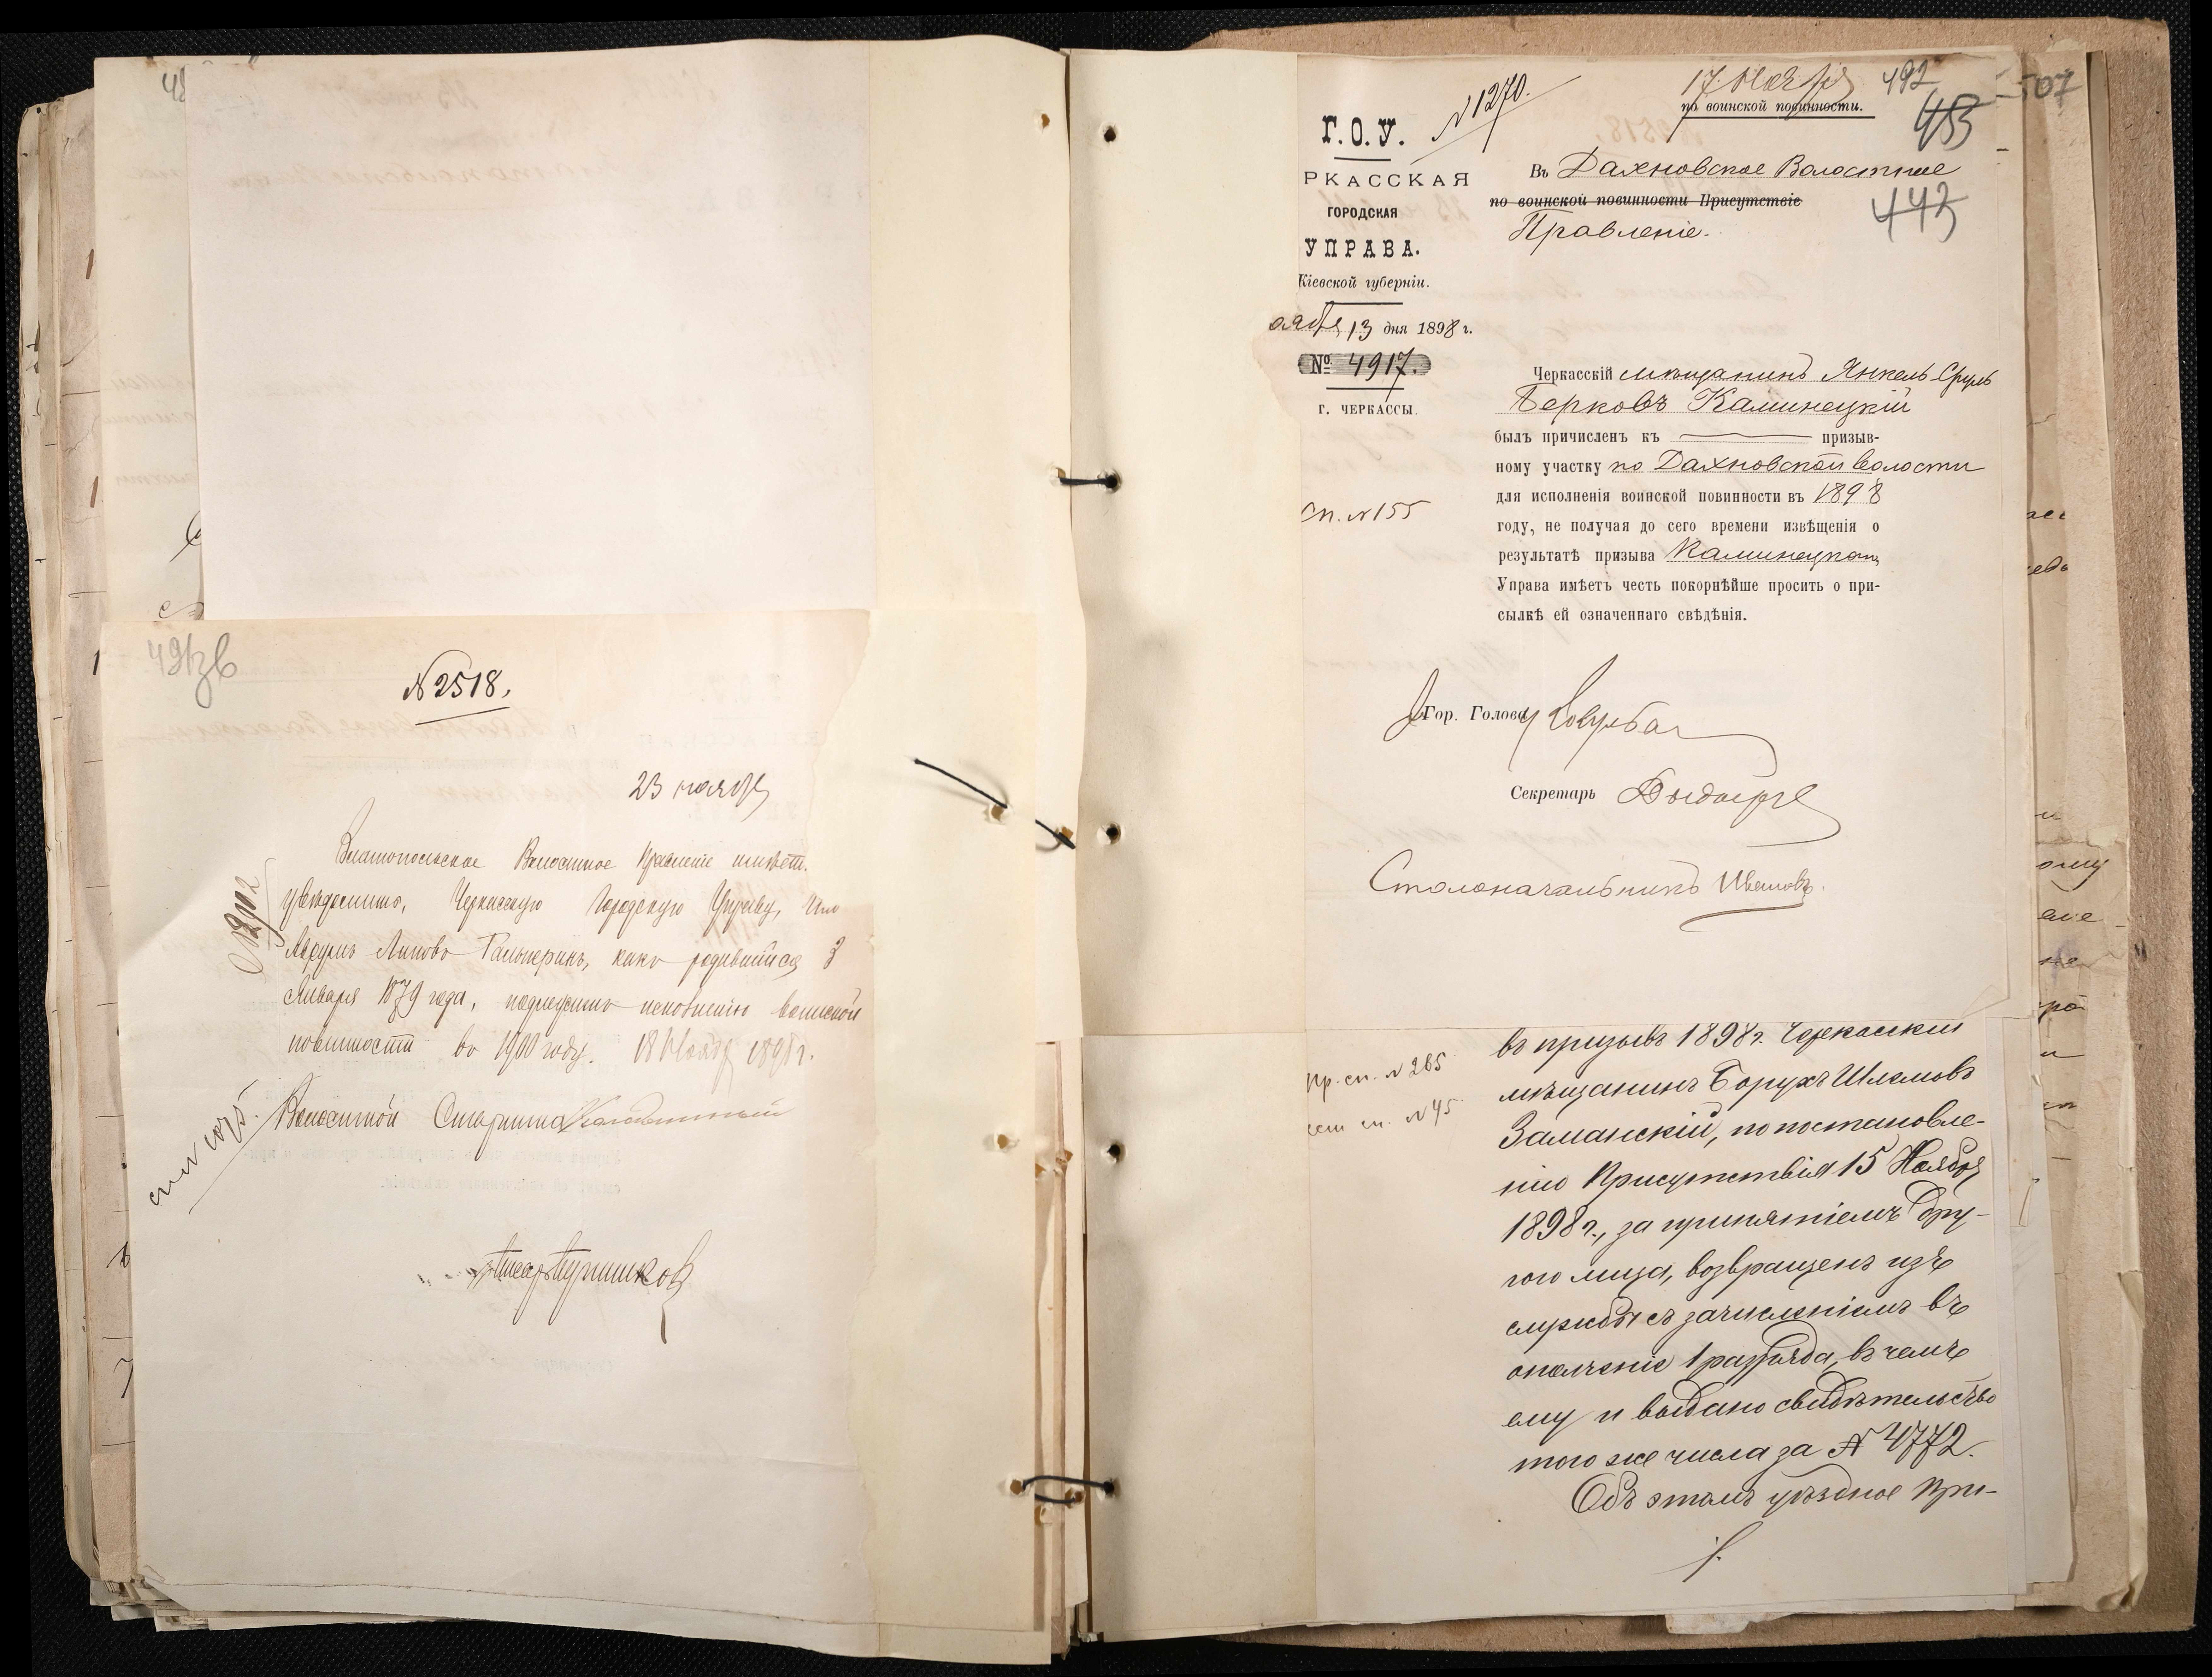 48
491 зв
N 2518.
23 ноября
Златопольское Волостное Правленіе имѣетъ
увѣдомить, Черкасскую Городскую Управу, что
Гальперинъ, какъ родившійся 3
Января 1879 года, подлежитъ исполненію воинской
повинности въ 1900 году. 18 Ноября 1898 г.
Волостной Старшина
Писарь
17 Ноября 492
по воинской повинности.
507
453
N 1270.
Г.О.У.
РКАССКАЯ
ГОРОДСКАЯ
УПРАВА.
Кіевской губерніи.
оября 13 дня 1898 г.
№ 4917.
г. ЧЕРКАССЫ.
Въ Дахновское Волостное
по воинской повинности Присутствіе
443
Правленіе.
Черкасскій мѣщанинъ Янкель-Сруль
Берковъ Каминецкій
былъ причисленъ къ призыв-
ному участку по Дахновской волости
для исполненія воинской повинности въ 1898
сп. N 155
году, не получая до сего времени извѣщенія о
результатѣ призыва Каминецкаго
Управа имѣетъ честь покорнѣйше просить о при-
сылкѣ ей означеннаго свѣдѣнія.
Гор. Голова
Секретарь
Столоначальникъ Ивановъ.
пр. сп. N 265
сп. N 45
въ призывъ 1898 г. Черкасскій
мѣщанинъ Борухъ Шлемовъ
Заманскій, по постановле-
нію Присутствія 15 Ноября
1898 г., за принятіемъ дру-
гого лица, возвращенъ изъ
службы съ зачисленіемъ въ
ополченіе 1 разряда, въ чемъ
ему и выдано свидѣтельство
того же числа за N 4772.
Объ этомъ уѣздное При-